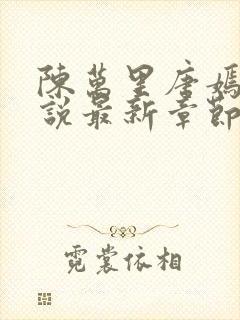 陳萬里唐嫣
說最新章節
霓裳依相